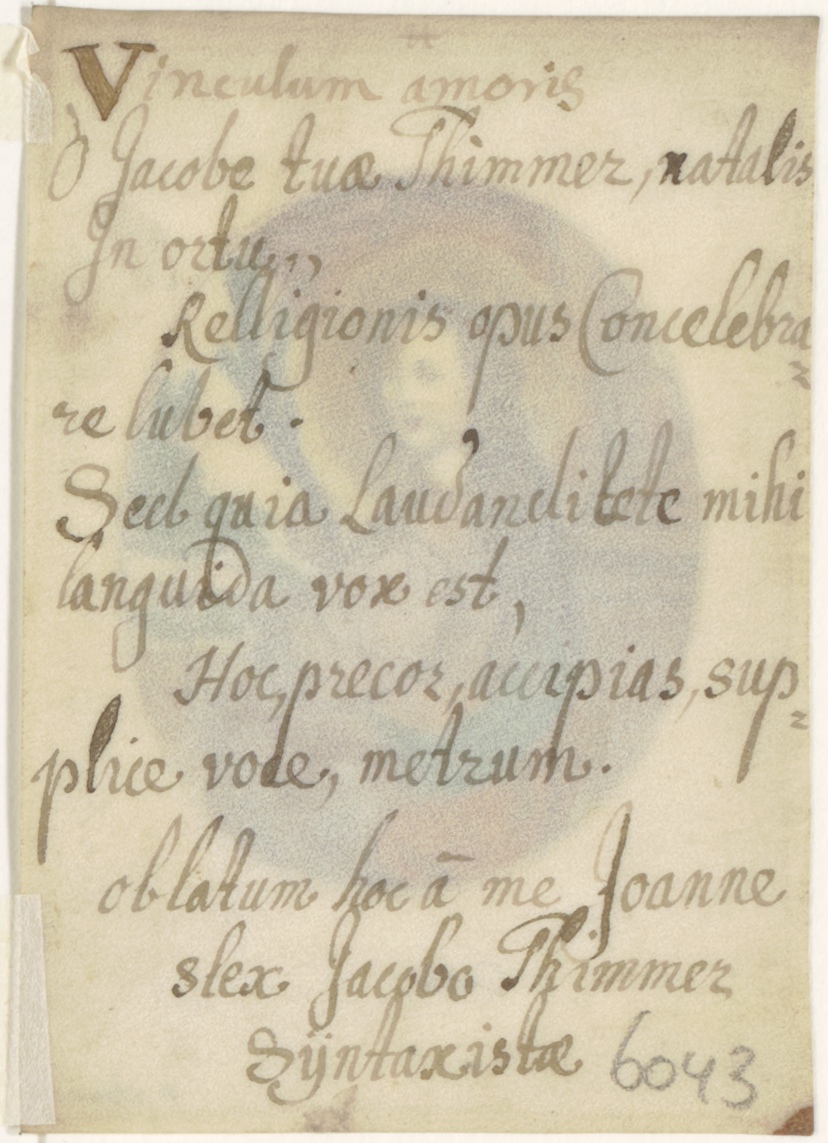 Vinculum amoris
O Jacobe tuæ Thimmer, natalis
In ortu,,
Relligionis opus Concelebra=
re lubet.
Sed quia Laudandi tete mihi
languida vox est,
Hoc, precor, accipias, sup=
plice voce, metrum.
oblatum hoc ā me Joanne
slex Jacobo Thimmer
Sÿntaxistæ 6043